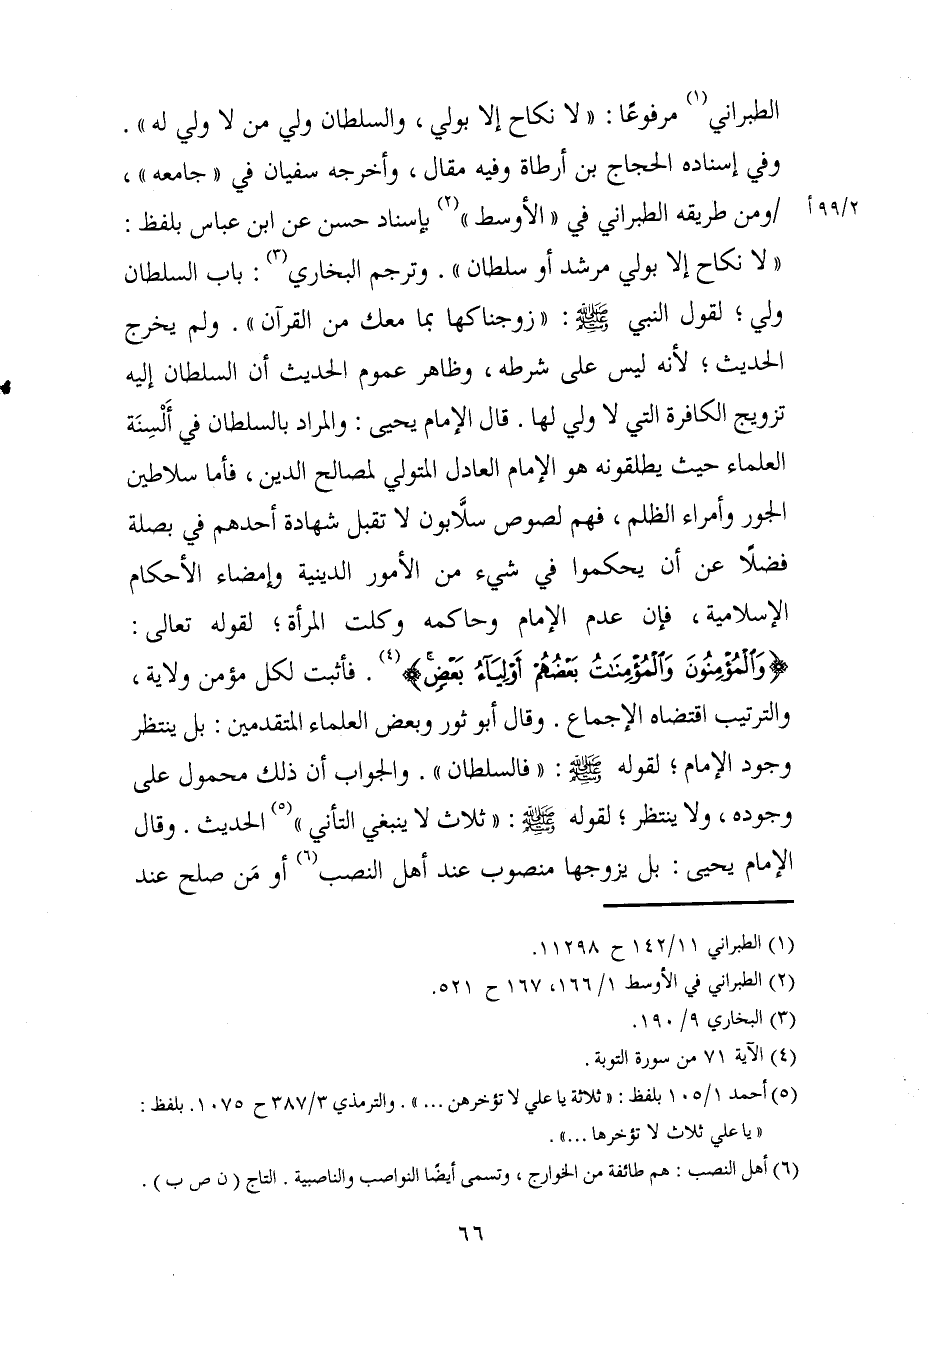 الطبراني(١) مرفوعًا : « لا نكاح إلا بولي ، والسلطان ولي من لا ولي له » .
وفي إسناده الحجاج بن أرطاة وفيه مقال ، وأخرجه سفيان في « جامعه » ،
٩٩/٢أ /ومن طريقه الطبراني في « الأوسط »(٢) بإسناد حسن عن ابن عباس بلفظ :
« لا نكاح إلا بولي مرشد أو سلطان » . وترجم البخاري(٣) : باب السلطان
ولي ؛ لقول النبي ﷺ : « زوجناكها بما معك من القرآن » . ولم يخرج
الحديث ؛ لأنه ليس على شرطه ، وظاهر عموم الحديث أن السلطان إليه
تزويج الكافرة التي لا ولي لها . قال الإمام يحيى : والمراد بالسلطان في أَلْسِنَة
العلماء حيث يطلقونه هو الإمام العادل المتولي لمصالح الدين ، فأما سلاطين
الجور وأمراء الظلم ، فهم لصوص سلَّابون لا تقبل شهادة أحدهم في بصلة
فضلًا عن أن يحكموا في شيء من الأمور الدينية وإمضاء الأحكام
الإسلامية ، فإن عدم الإمام وحاكمه وكلت المرأة ؛ لقوله تعالى :
﴿وَٱلْمُؤْمِنُونَ وَٱلْمُؤْمِنَٰتُ بَعْضُهُمْ أَوْلِيَآءُ بَعْضٍۚ﴾(٤) . فأثبت لكل مؤمن ولاية ،
والترتيب اقتضاه الإجماع . وقال أبو ثور وبعض العلماء المتقدمين : بل ينتظر
وجود الإمام ؛ لقوله ﷺ : « فالسلطان » . والجواب أن ذلك محمول على
وجوده ، ولا ينتظر ؛ لقوله ﷺ : « ثلاث لا ينبغي التأني »(٥) الحديث . وقال
الإمام يحيى : بل يزوجها منصوب عند أهل النصب(٦) أو مَن صلح عند
(١) الطبراني ١٤٢/١١ ح ١١٢٩٨.
(٢) الطبراني في الأوسط ١/ ١٦٦، ١٦٧ ح ٥٢١.
(٣) البخاري ٩/ ١٩٠.
(٤) الآية ٧١ من سورة التوبة .
(٥) أحمد ١٠٥/١ بلفظ : « ثلاثة يا علي لا تؤخرهن ... » . والترمذي ٣٨٧/٣ ح ١٠٧٥. بلفظ :
« يا علي ثلاث لا تؤخرها ...» .
(٦) أهل النصب : هم طائفة من الخوارج ، وتسمى أيضًا النواصب والناصبية . التاج ( ن ص ب ) .
٦٦